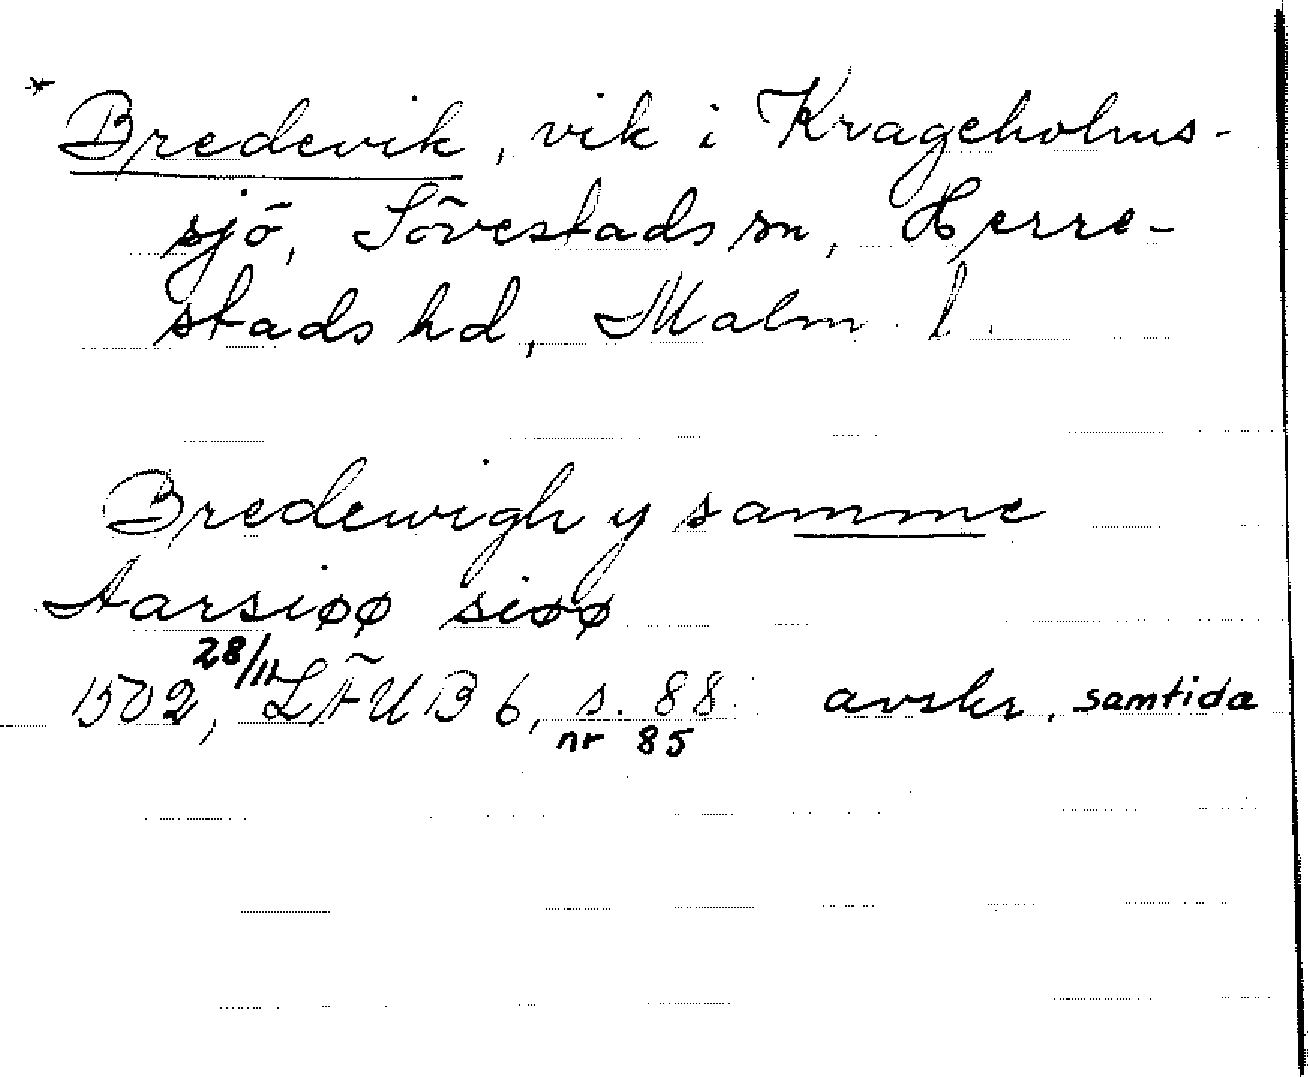 * Bredevik, vik i Krageholms-
sjö, Sövestads sn, Herre-
stads hd, Malm. l.
Bredewigh y samme
Aarsiøø siøø
1502, 28/11 LÄUB 6, s. 88. avskr. samtida
nr 85